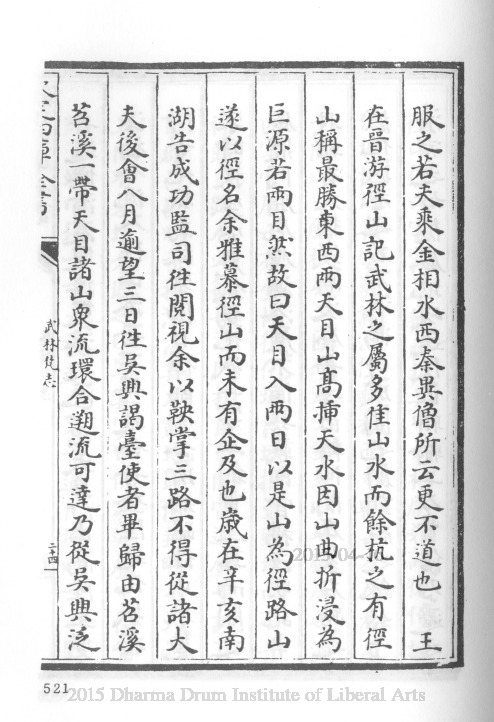 服之若夫乘金相水西秦異僧所云更不道也　王
在晉游徑山記武林之屬多佳山水而餘杭之有徑
山稱最勝東西兩天目山髙揷天水因山曲折浸為
巨源若兩目然故曰天目入兩目以是山為徑路山
遂以徑名余雅慕徑山而未有企及也歲在辛亥南
湖告成功監司徃閱視余以鞅掌三路不得從諸大
夫後會八月逾望三日徃吳興謁臺使者畢歸由苕溪
苕溪一帶天目諸山衆流環合遡流可達乃從吳興泛
武林梵志
二十四
521
2015 Dharma Drum Institute of Liberal Arts